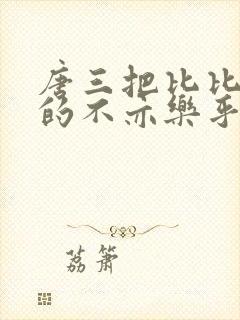 唐三把比比
的不亦樂乎
荔簫